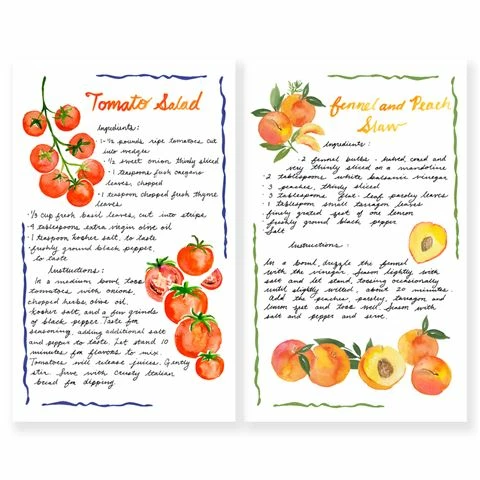 Tomato Salad
Ingredients:
· 1-½ pounds ripe tomatoes cut
into wedges
· ½ sweet onion, thinly sliced
· 1 teaspoons fresh oregano
leaves, chopped
· 1 teaspoon chopped fresh thyme
leaves
· ⅓ cup fresh basil leaves, cut into strips
· 4 tablespoons extra virgin olive oil
· 1 teaspoon kosher salt, to taste
· freshly ground black pepper,
to taste
Instructions:
In a medium bowl, toss
tomatoes with onions,
chopped herbs, olive oil,
kosher salt, and a few grinds
of black pepper. Taste for
seasoning, adding additional salt
and pepper to taste. Let stand 10
minutes for flavors to mix.
Tomatoes will release juices. Gently
stir. Serve with crusty Italian
bread for dipping.
Fennel and Peach
Slaw
Ingredients:
· 2 fennel bulbs - halved, cored and
very thinly sliced on a mandoline
· 2 tablespoons white balsamic vinegar
· 3 peaches, thinly sliced
· 3 tablespoons flat-leaf parsley leaves
· 1 tablespoon small tarragon leaves
· finely grated zest of one lemon
· freshly ground black pepper
· Salt
Instructions:
In a bowl, the fennel
with the vinegar. Season lightly with
salt and let stand, tossing occasionally
until slightly wilted, about 20 minutes.
Add the peaches, parsley, tarragon and
lemon zest and toss well. Season with
salt and pepper and serve.